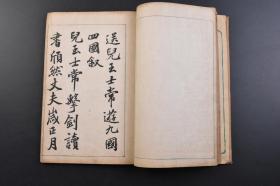 送兒玉士常遊九國
四國叙
兒玉士常擊劍讀
書頎然丈夫歲正月